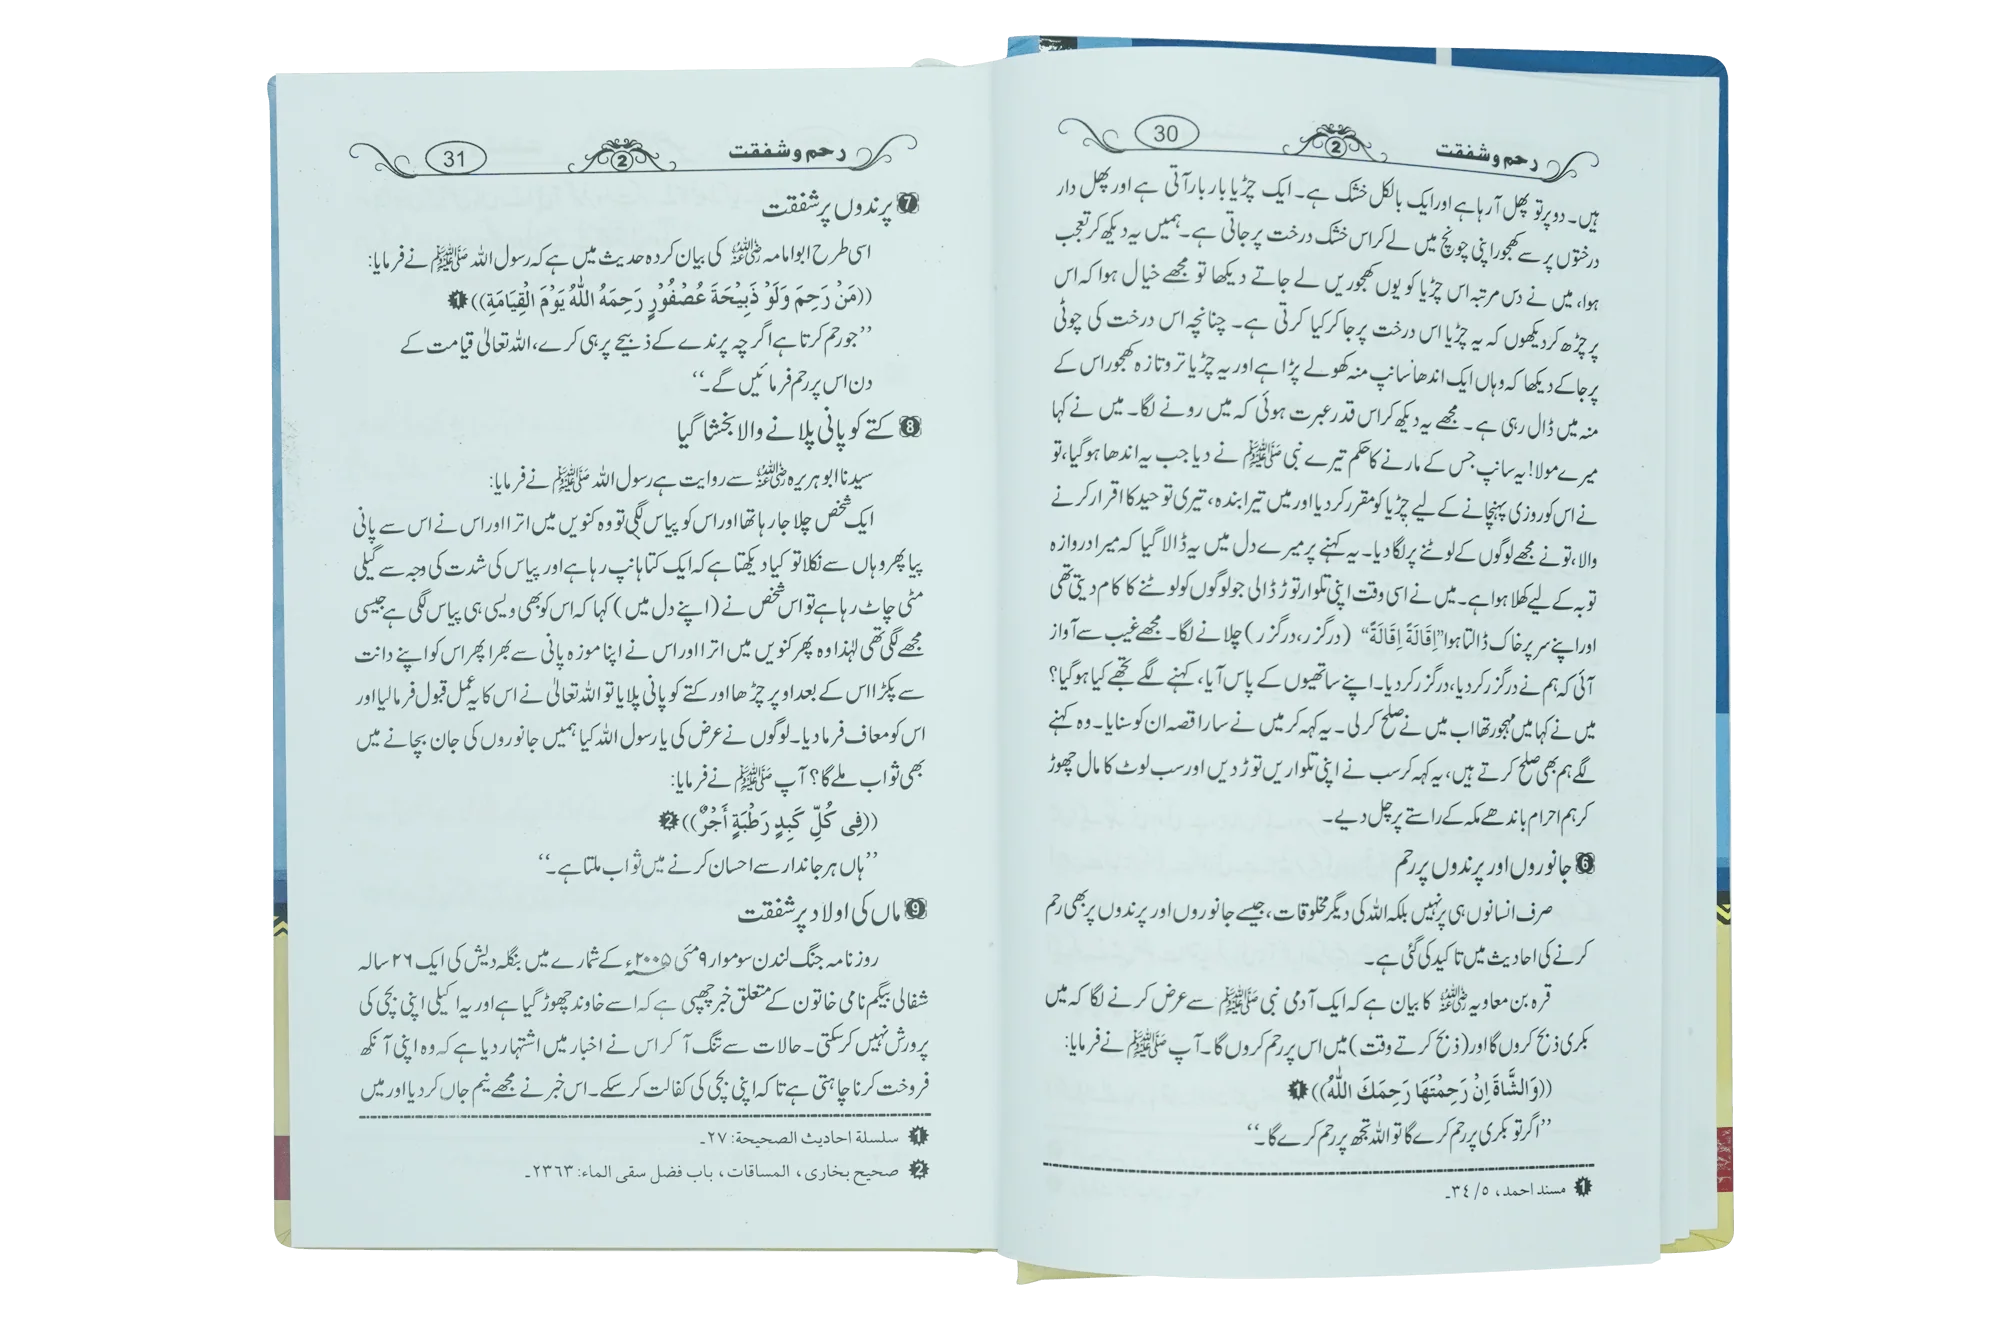 رحم و شفقت 2 30
ہیں۔ دو پر تو پھل آ رہا ہے اور ایک بالکل خشک ہے۔ ایک چڑیا بار بار آتی ہے اور پھل دار
درختوں پر سے کھجور اپنی چونچ میں لے کر اس خشک درخت پر جاتی ہے۔ ہمیں یہ دیکھ کر تعجب
ہوا، میں نے دس مرتبہ اس چڑیا کو یوں کھجوریں لے جاتے دیکھا تو مجھے خیال ہوا کہ اس
پر چڑھ کر دیکھوں کہ یہ چڑیا اس درخت پر جا کر کیا کرتی ہے۔ چنانچہ اس درخت کی چوٹی
پر جا کے دیکھا کہ وہاں ایک اندھا سانپ منہ کھولے پڑا ہے اور یہ چڑیا تر و تازہ کھجور اس کے
منہ میں ڈال رہی ہے۔ مجھے یہ دیکھ کر اس قدر عبرت ہوئی کہ میں رونے لگا۔ میں نے کہا
میرے مولا! یہ سانپ جس کے مارنے کا حکم تیرے نبی ﷺ نے دیا جب یہ اندھا ہو گیا، تو
نے اس کو روزی پہنچانے کے لیے چڑیا کو مقرر کر دیا اور میں تیرا بندہ، تیری توحید کا اقرار کرنے
والا، تو نے مجھے لوگوں کے لوٹنے پر لگا دیا۔ یہ کہنے پر میرے دل میں یہ ڈالا گیا کہ میرا دروازہ
توبہ کے لیے کھلا ہوا ہے۔ میں نے اسی وقت اپنی تلوار توڑ ڈالی جو لوگوں کو لوٹنے کا کام دیتی تھی
اور اپنے سر پر خاک ڈالتا ہوا ”اِقَالَةً اِقَالَةً“ (درگزر، درگزر) چلانے لگا۔ مجھے غیب سے آواز
آئی کہ ہم نے درگزر کر دیا، درگزر کر دیا۔ اپنے ساتھیوں کے پاس آیا، کہنے لگے تجھے کیا ہو گیا؟
میں نے کہا میں مہجور تھا اب میں نے صلح کر لی۔ یہ کہہ کر میں نے سارا قصہ ان کو سنایا۔ وہ کہنے
لگے ہم بھی صلح کرتے ہیں، یہ کہہ کر سب نے اپنی تلواریں توڑ دیں اور سب لوٹ کا مال چھوڑ
کر ہم احرام باندھے مکہ کے راستے پر چل دیے۔
6 جانوروں اور پرندوں پر رحم
صرف انسانوں ہی پر نہیں بلکہ اللہ کی دیگر مخلوقات، جیسے جانوروں اور پرندوں پر بھی رحم
کرنے کی احادیث میں تاکید کی گئی ہے۔
قرہ بن معاویہ رضی اللہ عنہ کا بیان ہے کہ ایک آدمی نبی ﷺ سے عرض کرنے لگا کہ میں
بکری ذبح کروں گا اور (ذبح کرتے وقت) میں اس پر رحم کروں گا۔ آپ ﷺ نے فرمایا:
((وَالشَّاةَ اِنْ رَحِمْتَهَا رَحِمَكَ اللّٰهُ)) 1
”اگر تو بکری پر رحم کرے گا تو اللہ تجھ پر رحم کرے گا۔“
1 مسند احمد، ٥/٣٤۔
رحم و شفقت 2 31
7 پرندوں پر شفقت
اسی طرح ابوامامہ رضی اللہ عنہ کی بیان کردہ حدیث میں ہے کہ رسول اللہ ﷺ نے فرمایا:
((مَنْ رَحِمَ وَلَوْ ذَبِيْحَةَ عُصْفُوْرٍ رَحِمَهُ اللّٰهُ يَوْمَ الْقِيَامَةِ)) 1
”جو رحم کرتا ہے اگرچہ پرندے کے ذبیحے پر ہی کرے، اللہ تعالیٰ قیامت کے
دن اس پر رحم فرمائیں گے۔“
8 کتے کو پانی پلانے والا بخشا گیا
سیدنا ابوہریرہ رضی اللہ عنہ سے روایت ہے رسول اللہ ﷺ نے فرمایا:
ایک شخص چلا جا رہا تھا اور اس کو پیاس لگی تو وہ کنویں میں اترا اور اس نے اس سے پانی
پیا پھر وہاں سے نکلا تو کیا دیکھتا ہے کہ ایک کتا ہانپ رہا ہے اور پیاس کی شدت کی وجہ سے گیلی
مٹی چاٹ رہا ہے تو اس شخص نے (اپنے دل میں) کہا کہ اس کو بھی ویسی ہی پیاس لگی ہے جیسی
مجھے لگی تھی لہٰذا وہ پھر کنویں میں اترا اور اس نے اپنا موزہ پانی سے بھرا پھر اس کو اپنے دانت
سے پکڑا اس کے بعد اوپر چڑھا اور کتے کو پانی پلایا تو اللہ تعالیٰ نے اس کا یہ عمل قبول فرما لیا اور
اس کو معاف فرما دیا۔ لوگوں نے عرض کی یا رسول اللہ کیا ہمیں جانوروں کی جان بچانے میں
بھی ثواب ملے گا؟ آپ ﷺ نے فرمایا:
((فِی كُلِّ كَبِدٍ رَطْبَةٍ أَجْرٌ)) 2
”ہاں ہر جاندار سے احسان کرنے میں ثواب ملتا ہے۔“
9 ماں کی اولاد پر شفقت
روزنامہ جنگ لندن سوموار ۹ مئی ۲۰۰۵ء کے شمارے میں بنگلہ دیش کی ایک ۲۶ سالہ
شفالی بیگم نامی خاتون کے متعلق خبر چھپی ہے کہ اسے خاوند چھوڑ گیا ہے اور یہ اکیلی اپنی بچی کی
پرورش نہیں کر سکتی۔ حالات سے تنگ آ کر اس نے اخبار میں اشتہار دیا ہے کہ وہ اپنی آنکھ
فروخت کرنا چاہتی ہے تاکہ اپنی بچی کی کفالت کر سکے۔ اس خبر نے مجھے نیم جاں کر دیا اور میں
1 سلسلة احادیث الصحیحة: ٢٧۔
2 صحیح بخاری، المساقات، باب فضل سقی الماء: ٢٣٦٣۔